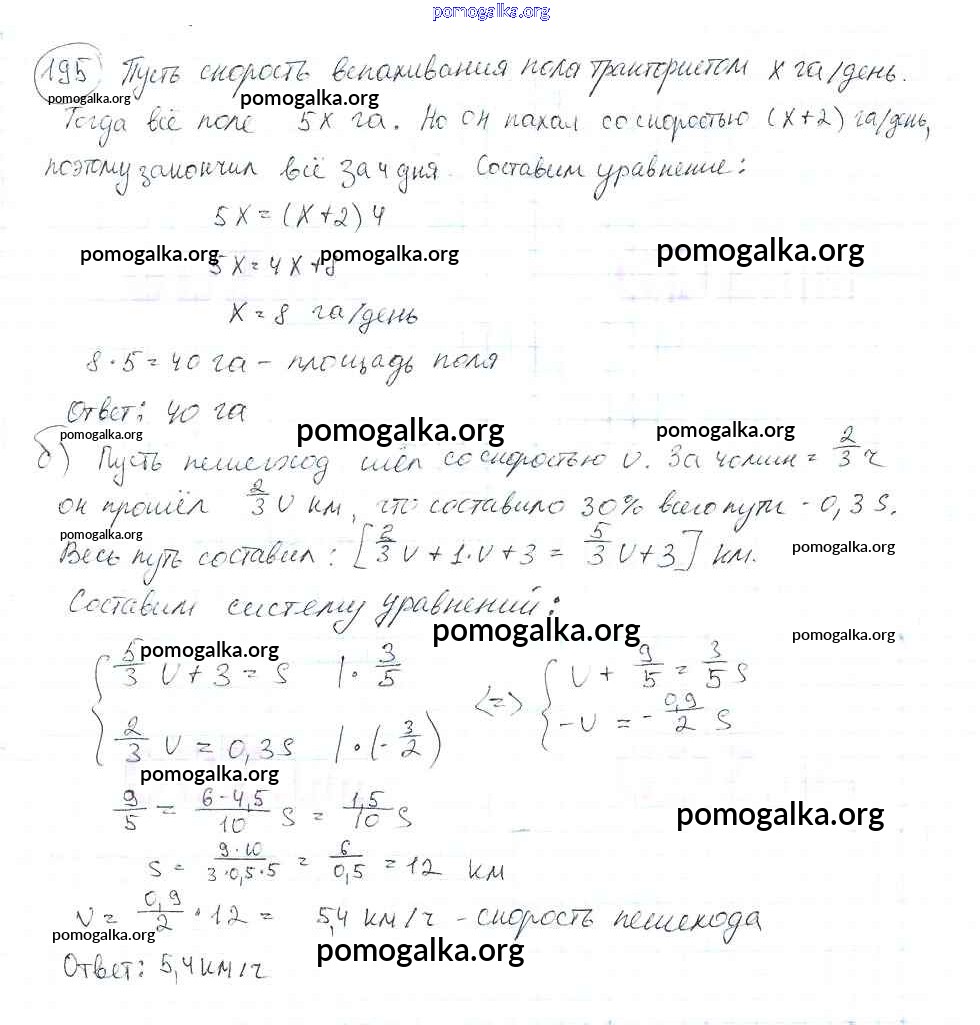 pomogalka.org
195 Пусть скорость вспахивания поля трактористом x га/день.
pomogalka.org pomogalka.org
Тогда всё поле 5x га. Но он пахал со скоростью (x+2) га/день,
поэтому закончил всё за 4 дня. Составим уравнение:
5x = (x+2)4
pomogalka.org pomogalka.org pomogalka.org
5x = 4x+8
x = 8 га/день
8·5 = 40 га – площадь поля
Ответ: 40 га
pomogalka.org pomogalka.org pomogalka.org
б) Пусть пешеход шёл со скоростью v. За 40 мин = 2/3 ч
он прошёл 2/3 v км, что составило 30% всего пути - 0,3 s.
pomogalka.org pomogalka.org
Весь путь составил: [2/3 v + 1·v + 3 = 5/3 v + 3] км.
Составим систему уравнений:
pomogalka.org pomogalka.org
pomogalka.org
{ 5/3 v + 3 = s |· 3/5 <=> { v + 9/5 = 3/5 s
2/3 v = 0,3s |·(- 3/2) -v = - 0,9/2 s
pomogalka.org
9/5 = 6-4,5/10 s = 1,5/10 s
pomogalka.org
s = 9·10/3·0,5·5 = 6/0,5 = 12 км
v = 0,9/2 · 12 = 5,4 км/ч - скорость пешехода
pomogalka.org pomogalka.org
Ответ: 5,4 км/ч